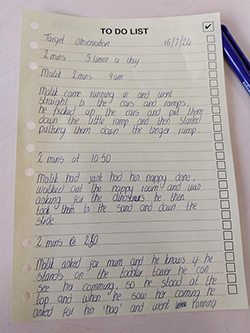 TO DO LIST
Target observation 16/7/24
2 mins 3 times a day
Malik 2mins 9am
Malik came running in and went
straight to the cars and ramps.
He picked up the cars and put them
down the little ramp and then started
putting them down the longer ramp.
2 mins at 10:50
Malik had just had his nappy done,
walked out the nappy room and was
asking for the dinosaurs he then
took them to the sand and down the
slide
2 mins @
Malik asked for mum and he knows if he
stands on the toddler tower he can
see her comming, so he stood at the
top and when he saw her coming he
asked for his 'bag' and went running